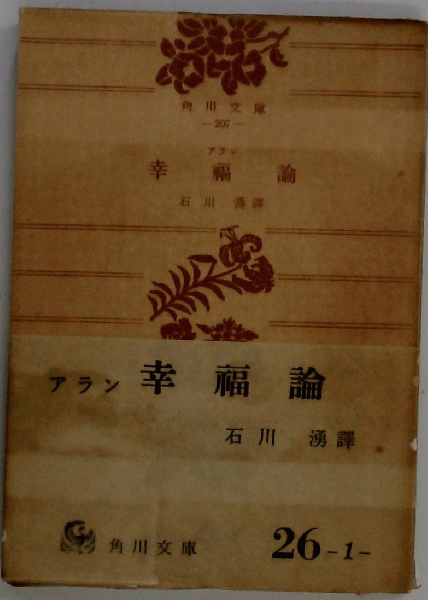 角川文庫
—207—
アラン
幸福論
石川湧譯
アラン 幸福論
石川 湧譯
角川文庫 26-1-